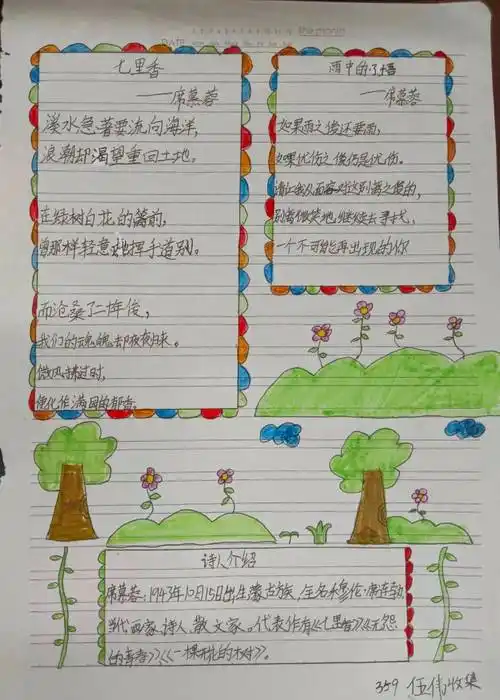 Memo No.
DATE
七里香
——席慕蓉
溪水急著要流向海洋,
浪潮却渴望重回土地。
在绿树白花的篱前,
曾那样轻意地挥手道别。
而沧桑了二十年后,
我们的魂魄却夜夜归来。
微风拂过时,
便化作满园的郁香
雨中的了悟
——席慕蓉
如果雨之后还要雨,
如果忧伤之后仍是忧伤。
请让我从容面对这别离之后的,
别离微笑地继续去寻找,
一个不可能再出现的你
诗人介绍
席慕蓉:1943年10月15日出生蒙古族,全名穆伦·席连勃,
当代画家、诗人、散文家。代表作有《七里香》《无怨
的青春》《一棵开花的树》。
359 伍伟收集